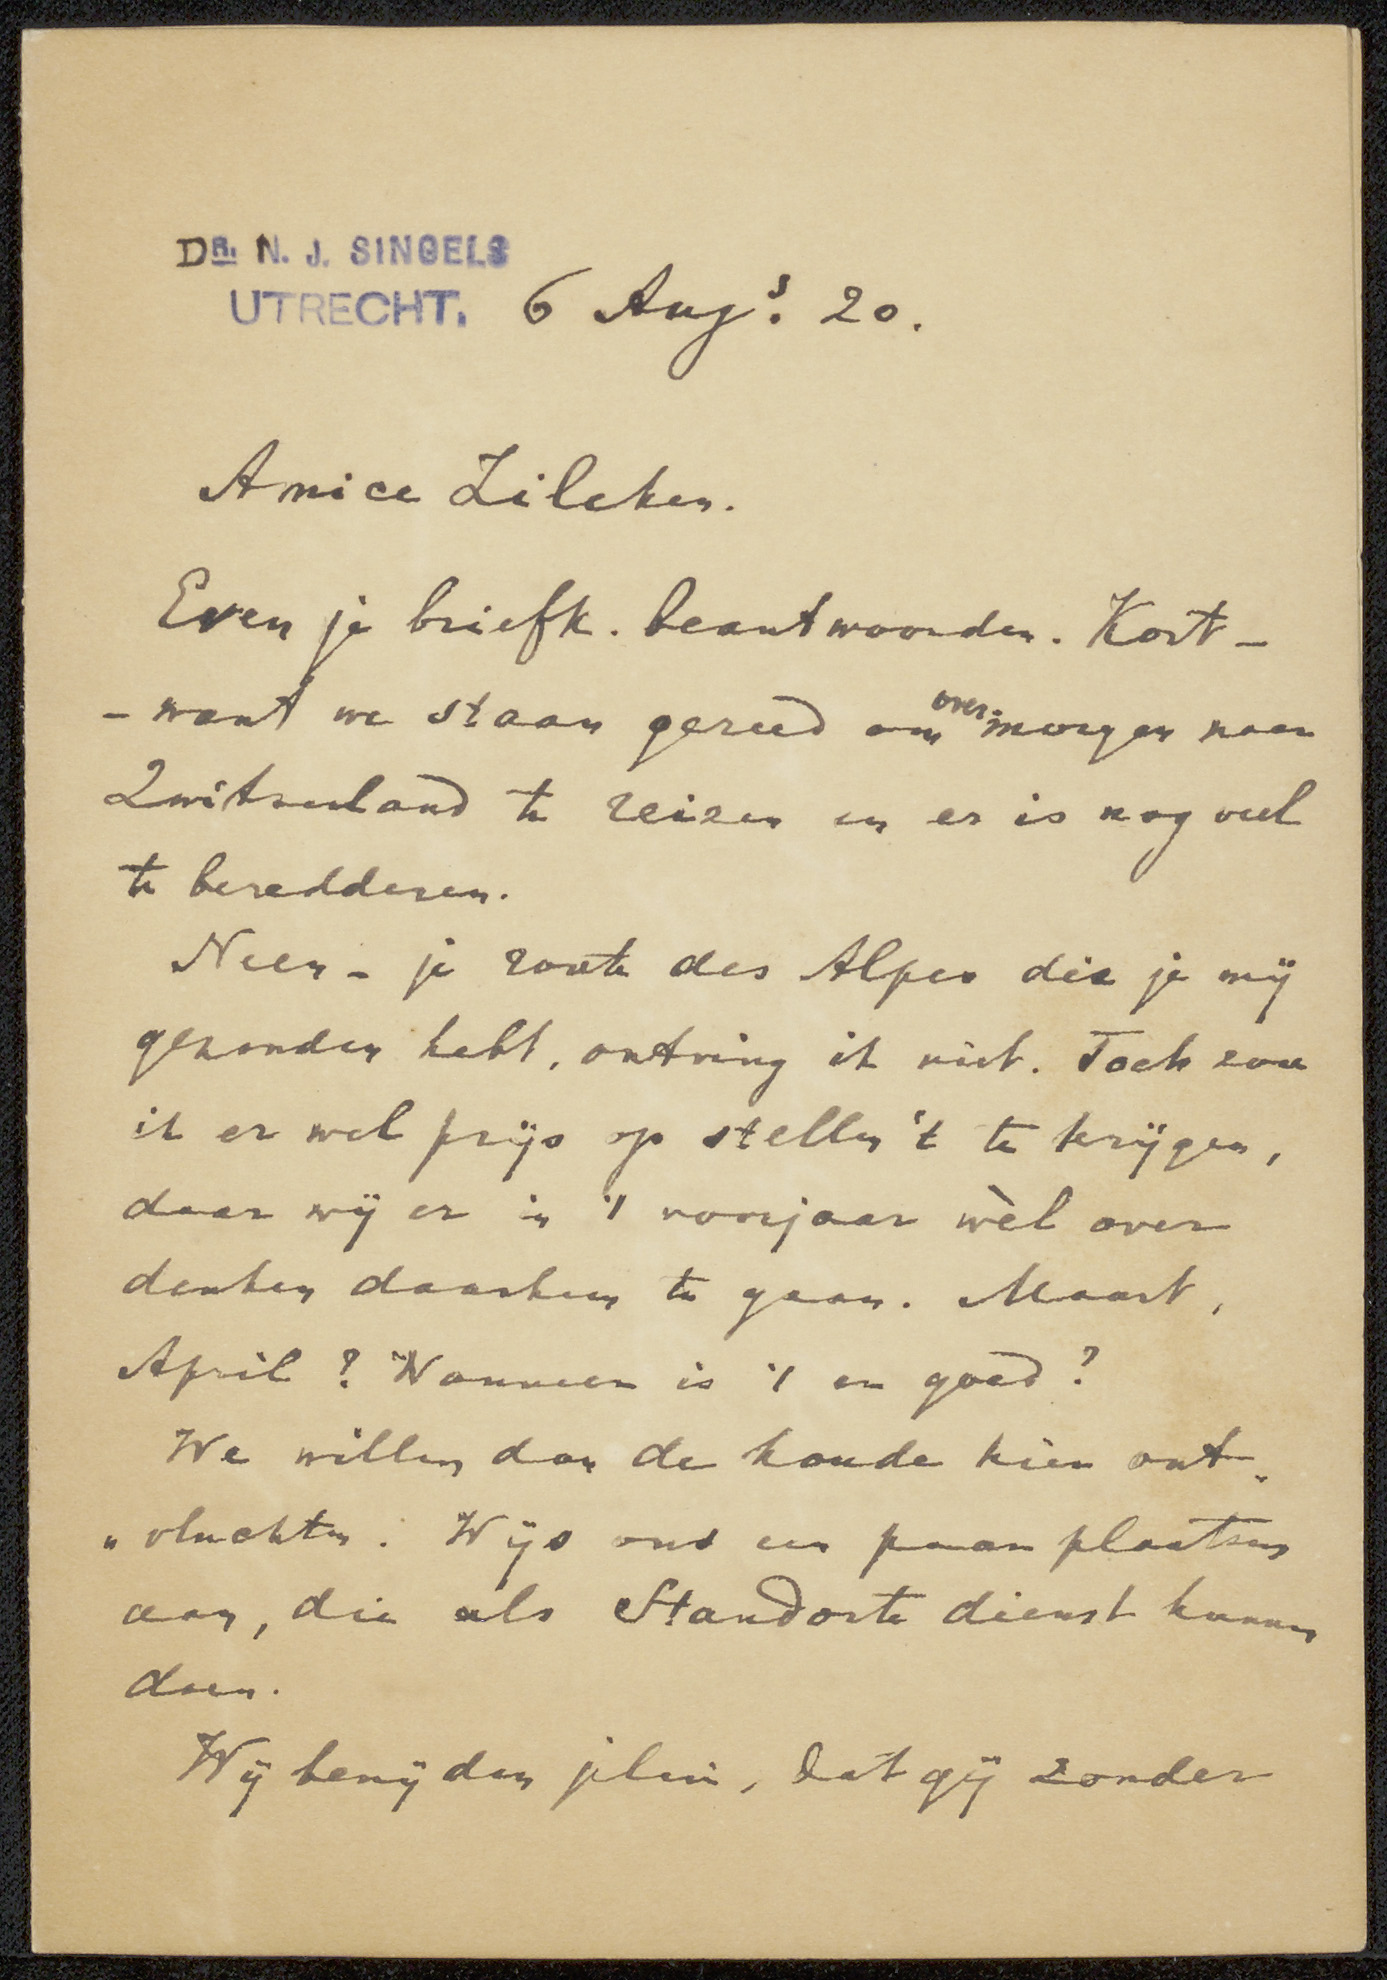 DR. N. J. SINGELS
UTRECHT. 6 Augs. 20.
Amice Zilcken.
Even je briefk. beantwoorden. Kort -
- want we staan gereed om over-morgen naar
Zwitserland te reizen en er is nog veel
te beredderen.
Neen - je route des Alpes die je mij
gezonden hebt, ontving ik niet. Toch zou
ik er wel prijs op stellen 't te krijgen,
daar wij er in 't voorjaar wèl over
denken daarheen te gaan. Maart,
April? Wanneer is 't er goed?
We willen dan de koude hier ont„
„vluchten. Wijs ons een paar plaatsen
aan, die als Standorte dienst kunnen
doen.
Wij benijden jelui, dat gij zonder